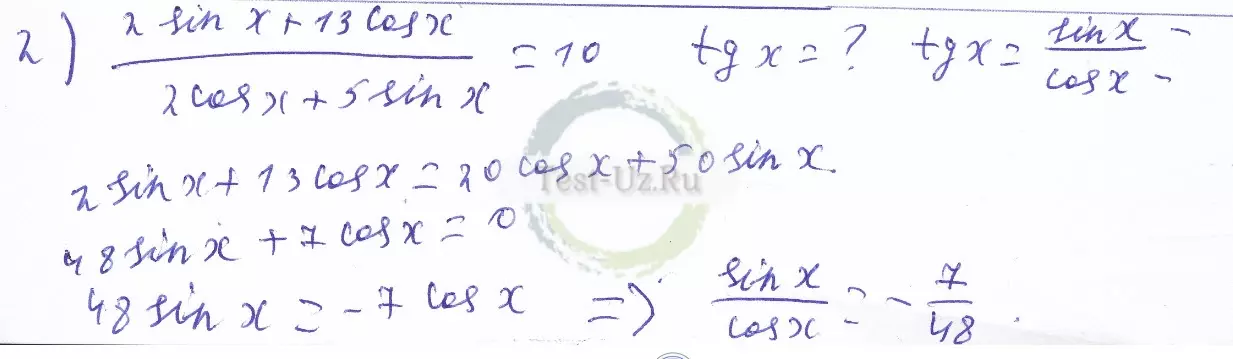 2) (2 sin x + 13 cos x)/(2 cos x + 5 sin x) = 10   tg x = ?   tg x = sin x/cos x -
Test-Uz.Ru
2 sin x + 13 cos x = 20 cos x + 50 sin x.
48 sin x + 7 cos x = 0
48 sin x = - 7 cos x => sin x/cos x = - 7/48.